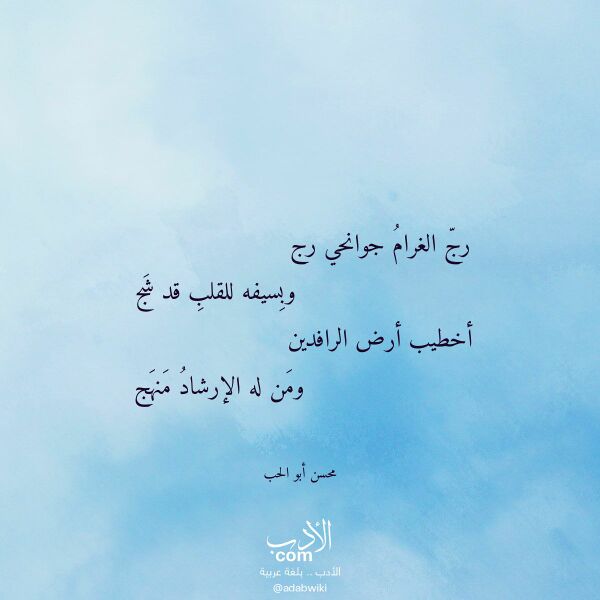 رجّ الغرامُ جوانحي رج
وبِسيفه للقلبِ قد شَج
أخطيب أرض الرافدين
ومَن له الإرشادُ مَنهَج
محسن أبو الحب
الأدب
com
الأدب .. بلغة عربية
@adabwiki